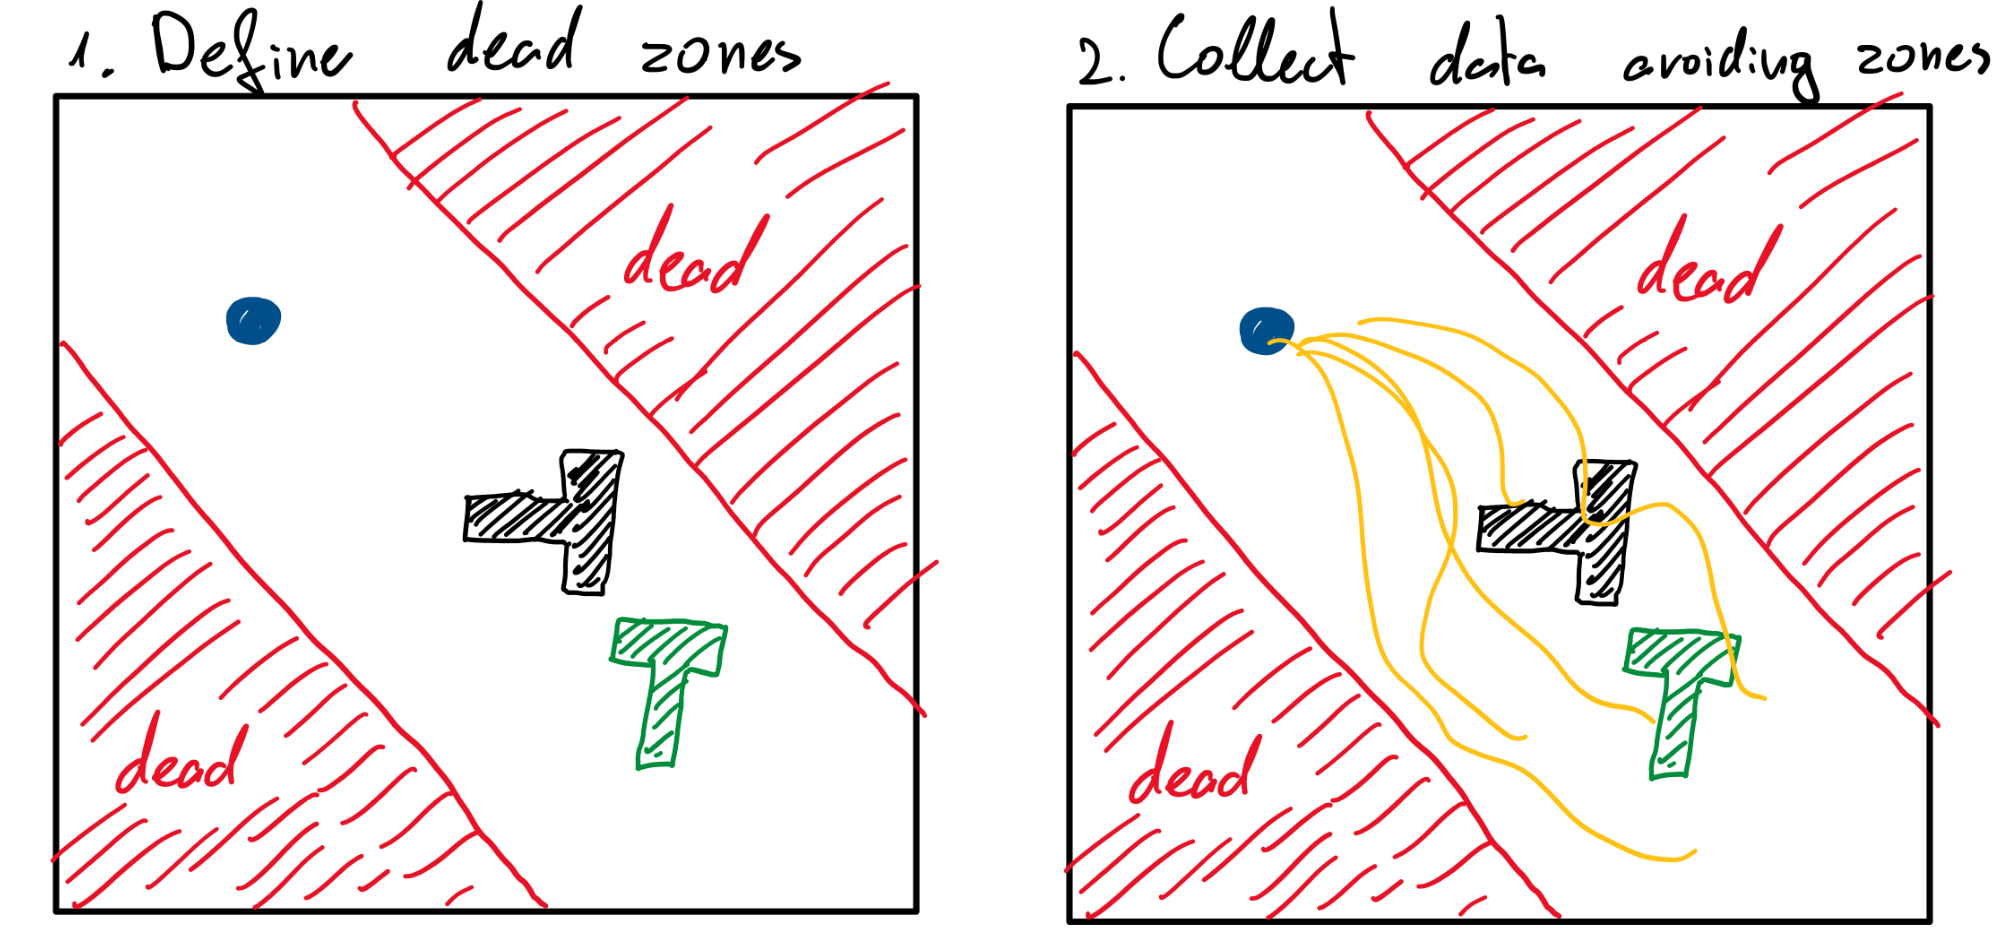 1. Define dead zones
dead
dead
2. Collect data avoiding zones
dead
dead